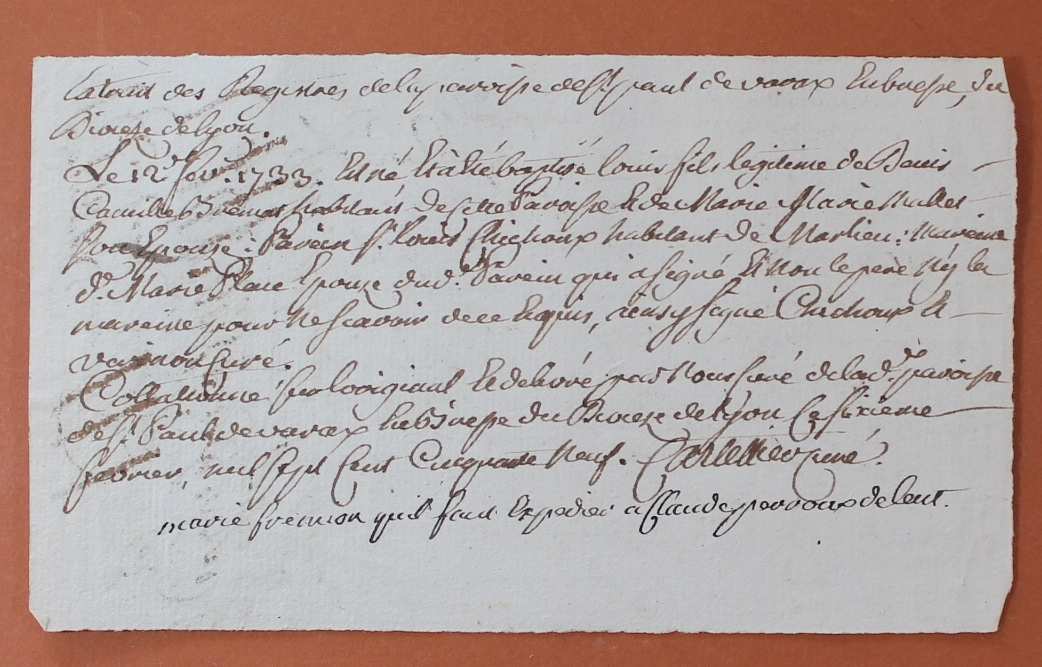 Extrait des Registres de la paroisse de St paul de varax En bresse, du
Diocese de lyon.
Le 12e fevr. 1733. Est né Et a été baptisé louis fils legitime de Denis
habitant de cette Paroisse Et de Marie Marie Mallet
son Epouze. Parein Sr. Louis Chichoux habitant de Marlieu: Mareine
De. Marie Place Epouze dud. Parein qui a signé Et Non le pere Ny la
mareine pour Ne scavoir de ce Enquis, ainsy signé Chichoux &
curé.
Collationné sur loriginal Et delivré par Nous curé de lad. paroisse
de St. Paul de varax En Bresse du Diocese de Lyon Ce sixieme
fevrier, mil sept Cent Cinquante Neuf. curé.
marie quil faut Expedier a Claude perroux de lent.